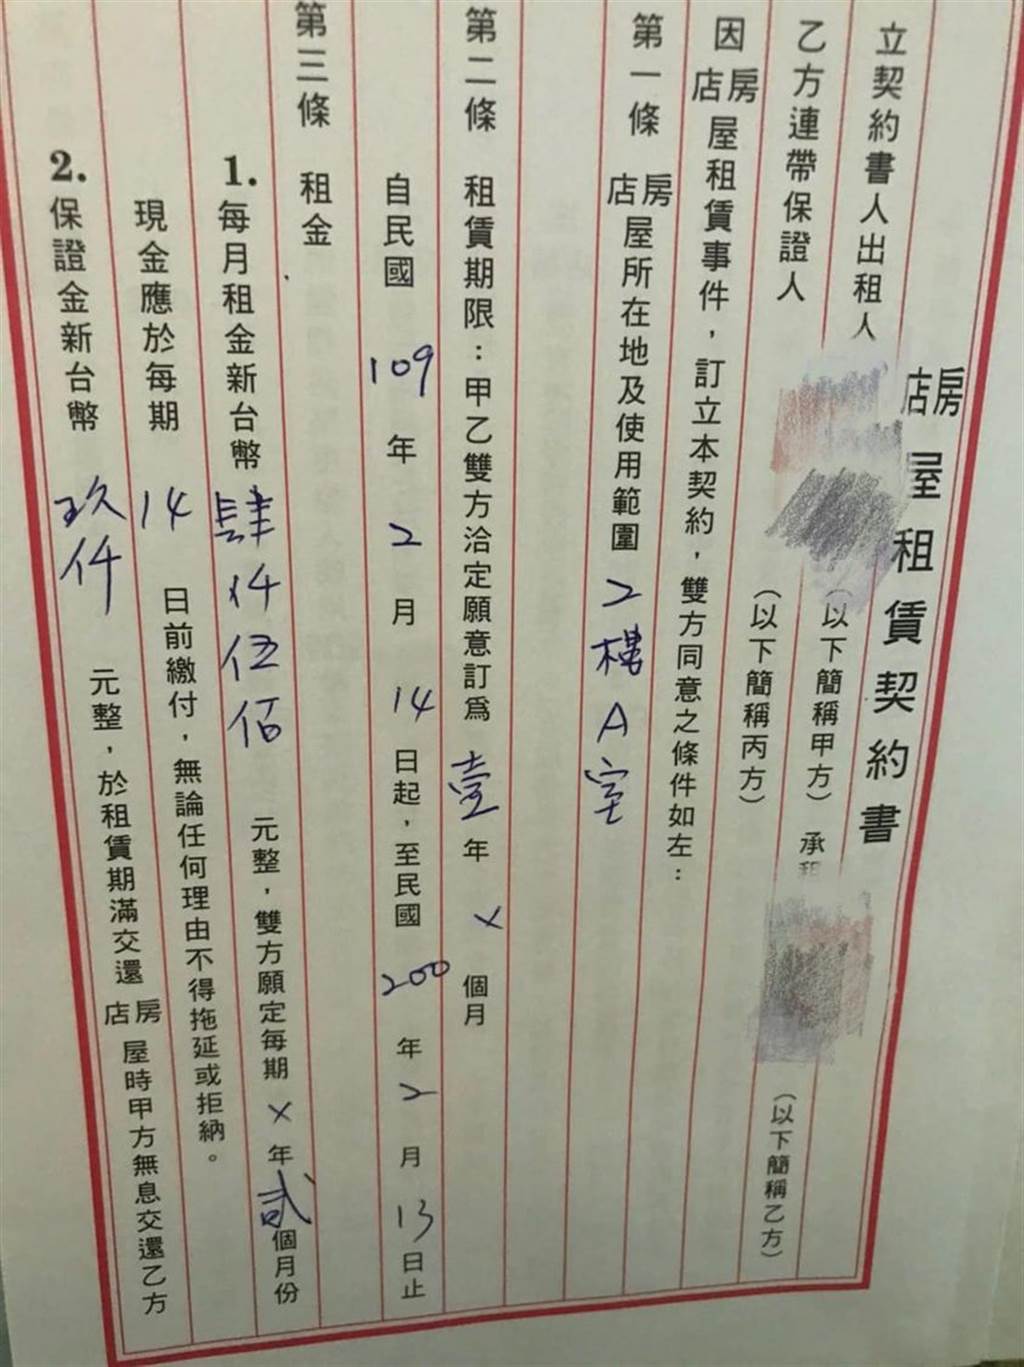 店房屋租賃契約書
立契約書人出租人（以下簡稱甲方）承租（以下簡稱乙方）
乙方連帶保證人（以下簡稱丙方）
因店房屋租賃事件，訂立本契約，雙方同意之條件如左：
第一條 店房屋所在地及使用範圍 2樓A室
第二條 租賃期限：甲乙雙方洽定願意訂為壹年 x 個月
自民國 109 年 2 月 14 日起，至民國 200 年 2 月 13 日止
第三條 租金
1. 每月租金新台幣 肆仟伍佰 元整，雙方願定每期 x 年 貳 個月份
現金應於每期 14 日前繳付，無論任何理由不得拖延或拒納。
2. 保證金新台幣 玖仟 元整，於租賃期滿交還店房屋時甲方無息交還乙方